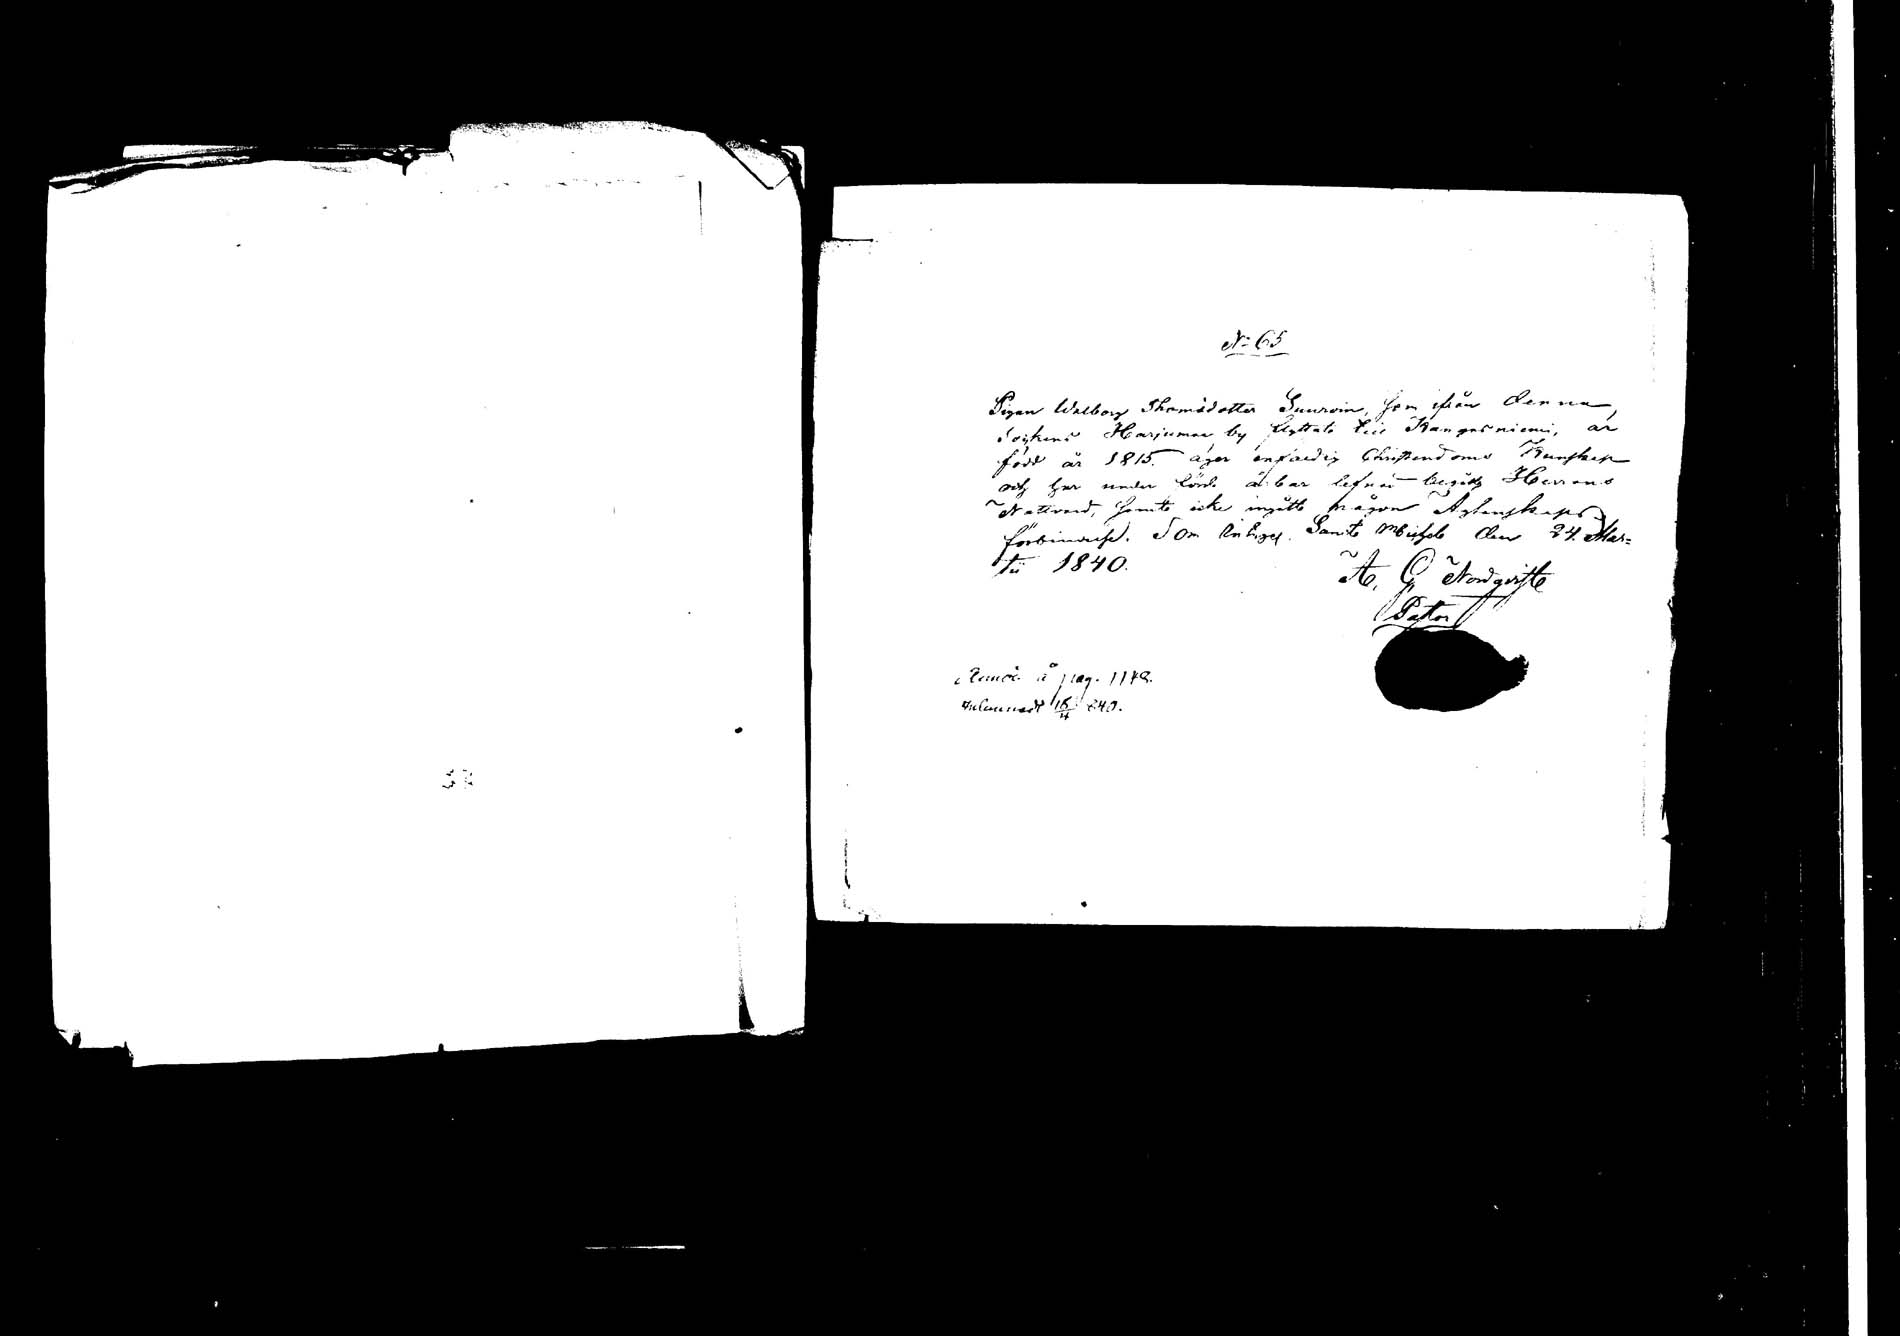 N:o 65
Pigan Walborg Thomasdotter Suuroin, som ifrån denna
Sockens Harjumaa by flyttat till Kangasniemi, är
född år 1815. äger enfaldig Christendoms Kunskap
och har under förd ärbar lefnad begått Herrans
Nattvard, samt icke ingått någon Ägtenskaps
förbindelse. Som intygas. Sanct Michels den 24. Mar=
tii 1840.
A. G. Nordqvist
Pastor
å pag. 1142.
Inlemnadt 15/4 840.